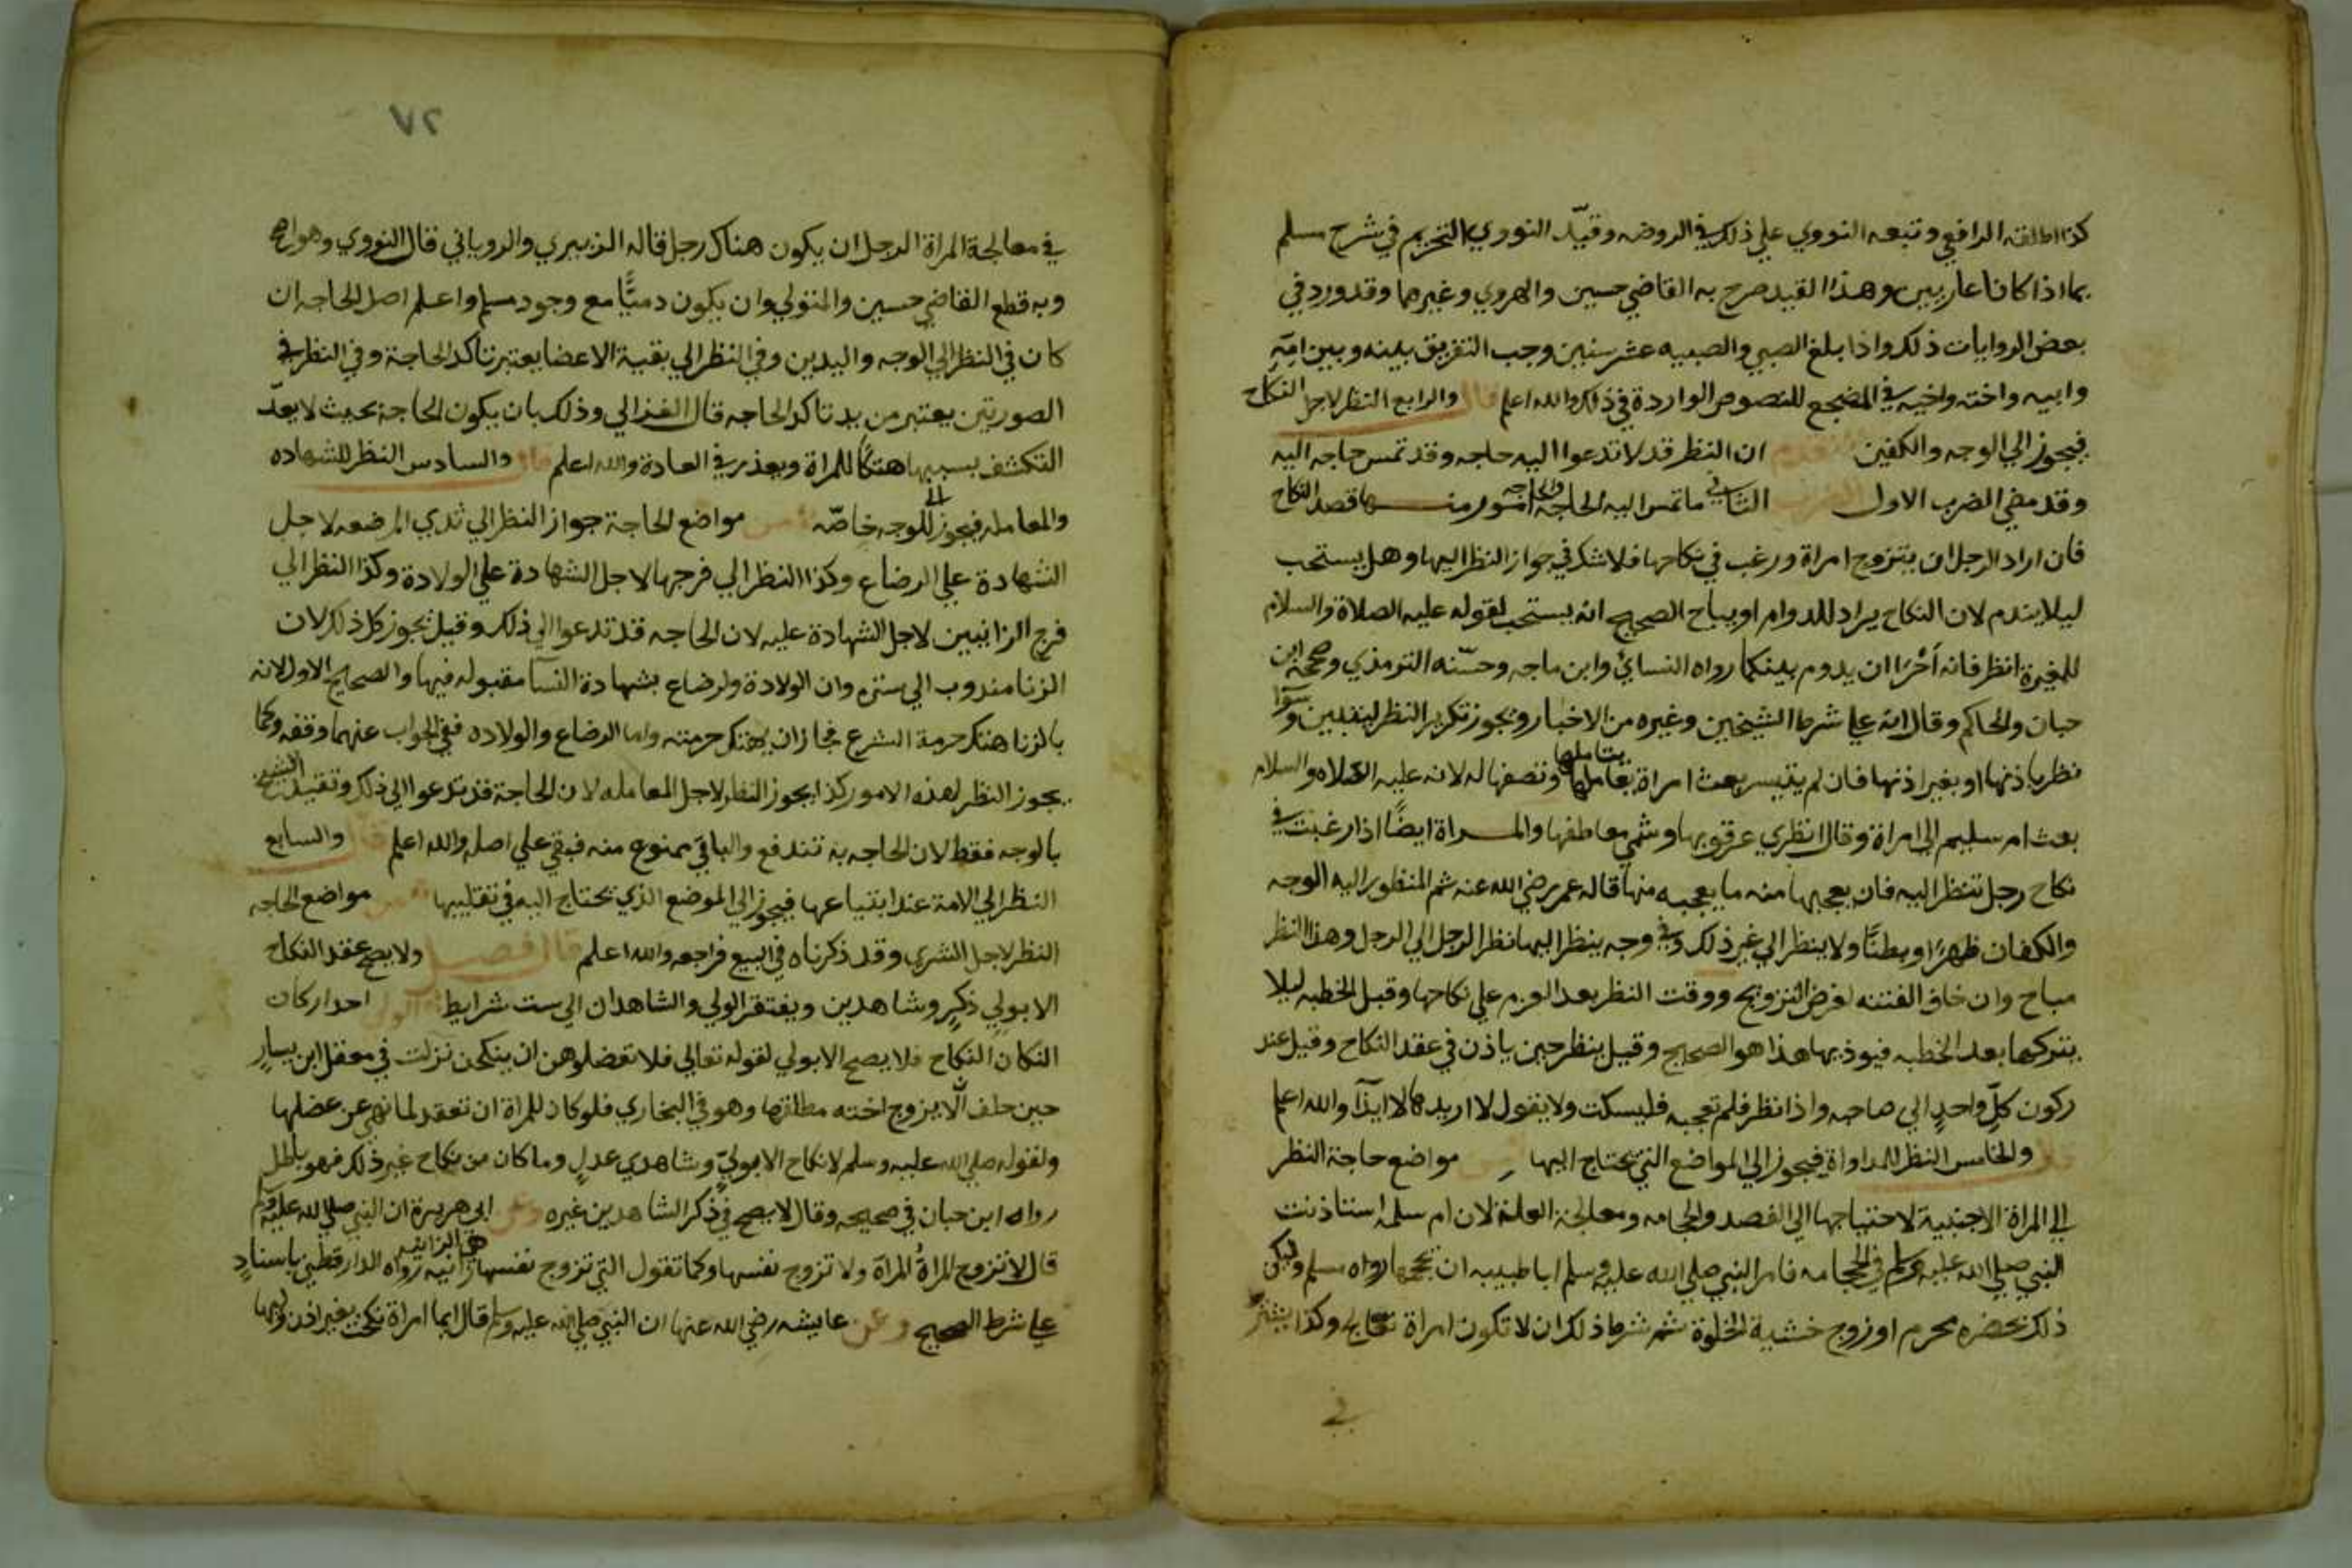 كذا اطلقه الرافعي وتبعه النووي علي ذلك في الروضه وقيّد النووي التحريم في شرح مسلم
بما اذا كانا عاريين وهذا القيد صرح به القاضي حسين والهروي وغيرهما وقد ورد في
بعض الروايات ذلك واذا بلغ الصبي والصبيه عشر سنين وجب التفريق بينه وبين امّه
وابيه واخته واخيه في المضجع للنصوص الواردة في ذلك والله اعلم قال والرابع النظر لاجل النكاح
فيجوز الي الوجه والكفين تقدم ان النظر قد لا تدعوا اليه حاجه وقد تمس حاجه اليه
وقد مضي الضرب الاول الضرب الثاني ما تمس اليه الحاجه والحاجه امور منها قصد النكاح
فان اراد الرجل ان يتزوج امراة ورغب في نكاحها فلا شك في جواز النظر اليها وهل يستحب
ليلا يندم لان النكاح يراد للدوام او يباح الصحيح انه يستحب لقوله عليه الصلاة والسلام
للمغيرة انظر فانه أحْرَا ان يدوم بينكما رواه النسائي وابن ماجه وحسّنه الترمذي وصححه ابن
حبان والحاكم وقال انه علي شرط الشيخين وغيره من الاخبار ويجوز تكرير النظر ليتبين وسوآ
نظر باذنها او بغير اذنها فان لم يتيسر بعث امراة تتاملها وتصفها له لانه عليه الصلاه والسلام
بعث ام سليم الي امراة وقال انظري عرقوبها وشمي معاطفها والمراة ايضًا اذا رغبت في
نكاح رجل تنظر اليه فان يعجبها منه ما يعجبه منها قاله عمر رضي الله عنه ثم المنظور اليه الوجه
والكفان ظهرًا وبطنًا ولا ينظر الي غير ذلك وفي وجه ينظر اليها نظر الرجل الي الرجل وهذا النظر
مباح وان خاف الفتنه لغرض التزويج ووقت النظر بعد العزم علي نكاحها وقبل الخطبه ليلا
يتركها بعد الخطبه فيوذيها هذا هو الصحيح وقيل ينظر حين ياذن في عقد النكاح وقيل عند
ركون كلّ واحدٍ الي صاحبه واذا نظر فلم تعجبه فليسكت ولا يقول لا اريدها لانه ايذآ والله اعلم
قال والخامس النظر للمداواة فيجوز الي المواضع التي يحتاج اليها من مواضع حاجة النظر
الي المراة الاجنبية لاحتياجها الي الفصد والحجامه ومعالجة العلة لان ام سلمه استاذنت
النبي صلي الله عليه وسلم في الحجامه فامر النبي صلي الله عليه وسلم ابا طيبه ان يحجمها رواه مسلم وليكن
ذلك بحضره محرم او زوج خشية الخلوة ثم شرط ذلك ان لا تكون امراة تعالج وكذا يشترط
في
٧٢
في معالجة المراة الرجل ان يكون هناك رجل قاله الزبيري والروياني قال النووي وهو اصح
وبه قطع القاضي حسين والمتولي وان يكون دميًّا مع وجود مسلم واعلم اصل الحاجه ان
كان في النظر الي الوجه واليدين وفي النظر الي بقية الاعضا يعتبر تاكد الحاجة وفي النظر في
الصورتين يعتبر من يد تاكد الحاجه قال الغزالي وذلك بان يكون الحاجة بحيث لا يعدّ
التكشف بسببها هتكًا للمراة ويعذر في العادة والله اعلم قال والسادس النظر للشهاده
والمعامله فيجوز الي الوجه خاصّه من مواضع الحاجة جواز النظر الي ثدي المرضعه لاجل
الشهادة علي الرضاع وكذا النظر الي فرجها لاجل الشهادة علي الولادة وكذا النظر الي
فرج الزانيين لاجل الشهادة عليه لان الحاجه قد تدعوا الي ذلك وقيل يجوز كل ذلك لان
الزنا مندوب الي ستره وان الولادة والرضاع بشهادة النسآ مقبوله فيها والصحيح الاول لانه
بالزنا هتك حرمة الشرع فجاز ان يهتك حرمته واما الرضاع والولاده ففي الجواب عنهما وقفه وكما
يجوز النظر لهذه الامور كذا يجوز النظر لاجل المعامله لان الحاجة قد تدعوا الي ذلك وتقييد الشيخ
بالوجه فقط لان الحاجه به تندفع والباقي ممنوع منه فبقي علي اصله والله اعلم قال والسابع
النظر الي الامة عند ابتياعها فيجوز الي الموضع الذي يحتاج اليه في تقليبها من مواضع الحاجه
النظر لاجل الشري وقد ذكرناه في البيع فراجعه والله اعلم قال فصل ولا يصح عقد النكاح
الا بولي ذكرٍ وشاهدين ويفتقر الولي والشاهدان الي ست شرايط الولي احد اركان
النكاح النكاح فلا يصح الا بولي لقوله تعالي فلا تعضلوهن ان ينكحن نزلت في معقل ابن يسارٍ
حين حلف الّا يزوج اخته مطلقها وهو في البخاري فلو كان للمراة ان تعقد لما نهي عن عضلها
ولقوله صلي الله عليه وسلم لا نكاح الا بوليّ وشاهدي عدلٍ وما كان من نكاح غير ذلك فهو باطل
رواه ابن حبان في صحيحه وقال لا يصح في ذكر الشاهدين غيره وعن ابي هريرة ان النبي صلي الله عليه وسلم
قال لا تزوج المراةُ المراة ولا تزوج نفسها وكما تقول التي تزوج نفسها هي الزانيه زانيه رواه الدارقطني باسنادٍ
علي شرط الصحيح وعن عايشه رضي الله عنها ان النبي صلي الله عليه وسلم قال ايما امراة نكحت بغير اذن وليها